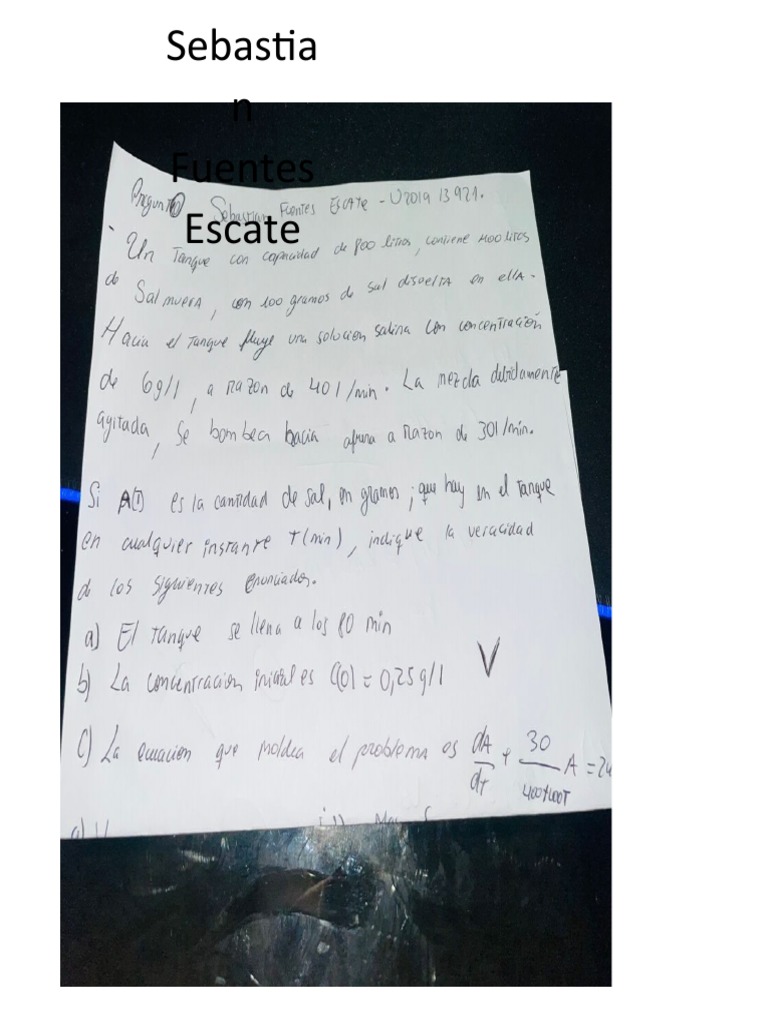 Sebastia
n
Fuentes
Escate
Pregunta Sebastian Fuentes Escate - U201913921.
Un Tanque con capacidad de 800 litros, contiene 400 litros
de Salmuera, con 100 gramos de sal disuelta en ella.
Hacia el tanque fluye una solucion salina con concentración
de 6g/l, a razon de 40 l/min. La mezcla debidamente
agitada, se bombea hacia afuera a razon de 30l/min.
Si A(t) es la cantidad de sal, en gramos, que hay en el tanque
en cualquier instante T(min), indique la veracidad
de los siguientes enunciados.
a) El tanque se llena a los 80 min
b) La concentracion inicial es C(0) = 0,25g/l V
c) La ecuacion que moldea el problema es dA/dt + 30/ A = 24